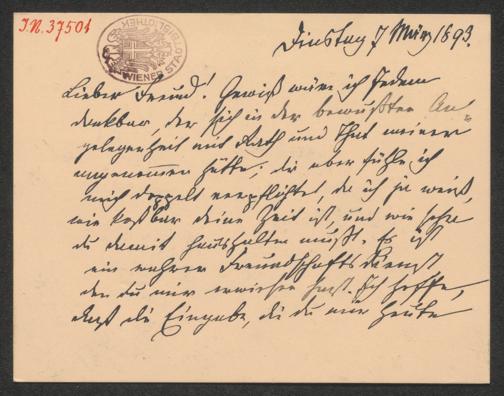 I.N. 37501
WIENER STADTBIBLIOTHEK
Dinstag 7 März 1893.
Lieber Freund! Gewiß wäre ich Jedem
dankbar, der sich in der bewußten An=
gelegenheit mit Rath und That meiner
angenommen hätte; dir aber fühle ich
mich doppelt verpflichtet, da ich ja weiß,
wie kostbar deine Zeit ist, und wie sehr
du damit haushalten mußt. Es ist
ein wahrer Freundschaftsdienst
den du mir erwiesen hast. Ich hoffe,
daß die Eingabe, die du mir heute